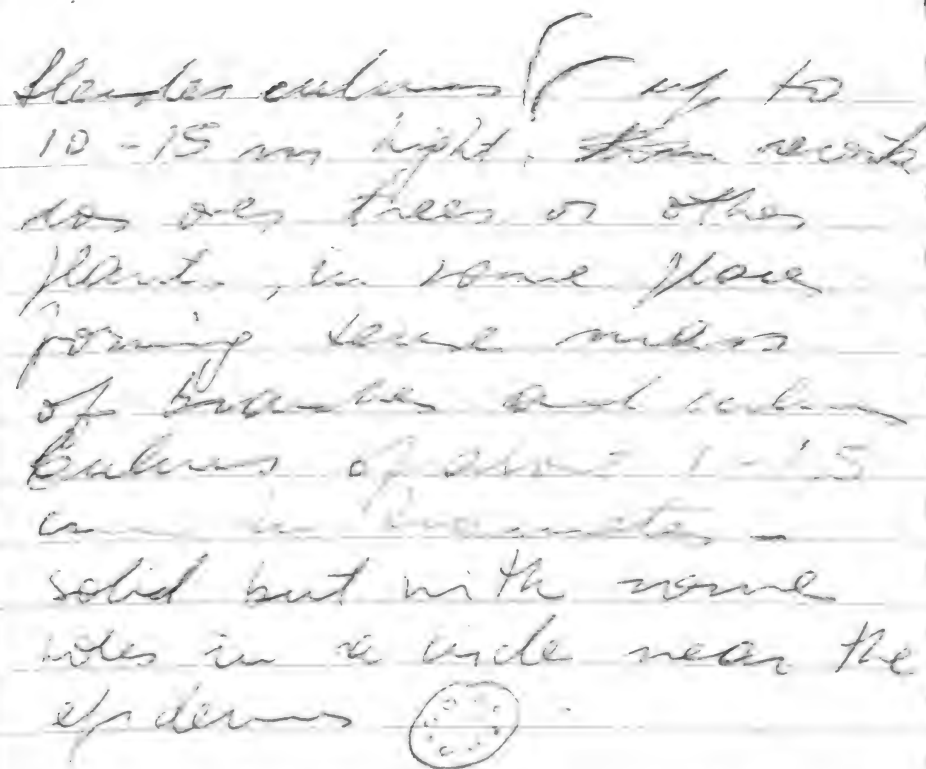 Slender culms up to
10-15 m hight,
over trees or other
plants, in some place
forming dense mass
of branches and culms
Culms of about 1-1.5
cm in diameter -
solid but with some
holes in a circle near the
epidermis